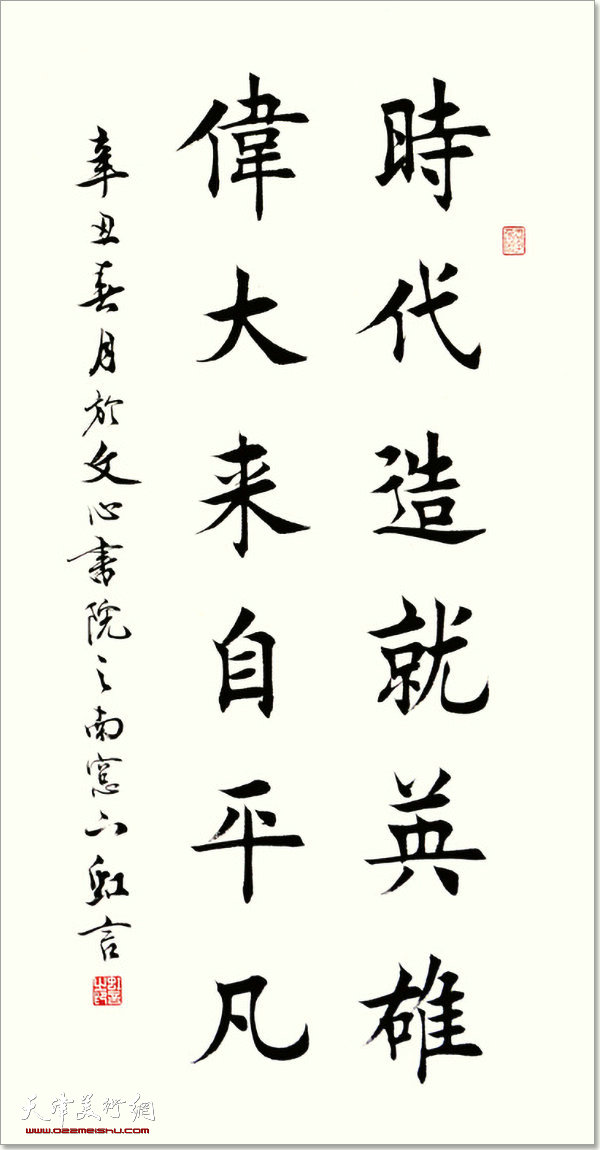 時代造就英雄
偉大来自平凡
辛丑春月於文心書院之南窓下虹言
天津美術網
www.022meishu.com